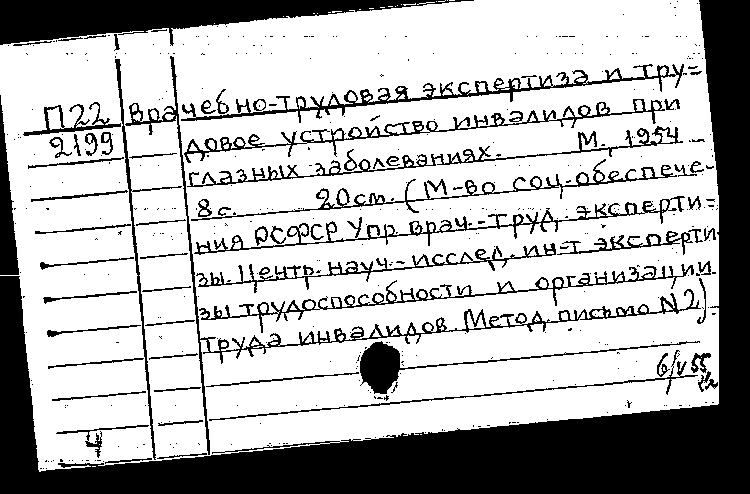 П22 Врачебно-трудовая экспертиза и тру=
2199 довое устройство инвалидов при
глазных заболеваниях. М., 1954
8 с. 20 см. (М-во соц. обеспече-
ния РСФСР Упр врач.-труд. эксперти=
зы. Центр. науч.-исслед. ин-т эксперти
зы трудоспособности и организации
труда инвалидов. Метод. письмо N 2).
6/V 55
4